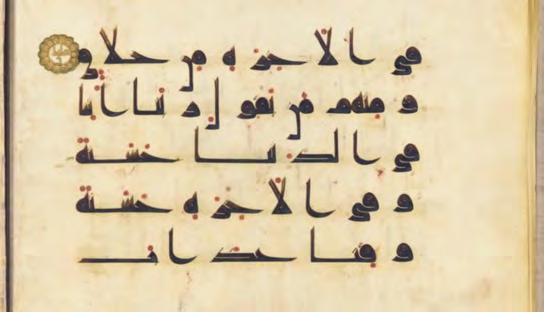 في الاخرة من خلاق
و منهم من يقول ربنا اتنا
في الد نيا حسنة
و في الاخرة حسنة
و قنا عذاب